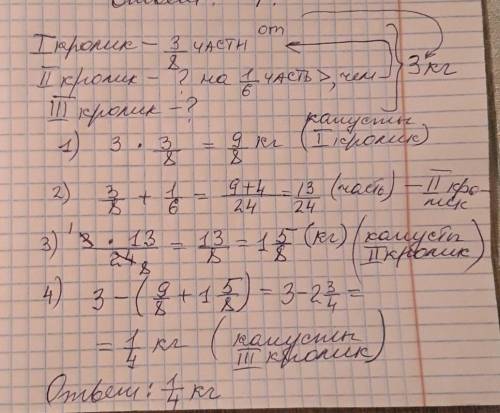 Ответ: 
I кролик - 3/8 части от
II кролик - ? на 1/6 часть >, чем
III кролик - ?
3 кг
1) 3 · 3/8 = 9/8 кг (капусты I кролик)
2) 3/8 + 1/6 = (9+4)/24 = 13/24 (часть) - II кролик
3) (3 · 13)/24 = 13/8 = 1 5/8 (кг) (капусты II кролик)
4) 3 - (9/8 + 1 5/8) = 3 - 2 3/4 =
= 1/4 кг (капусты III кролик)
Ответ: 1/4 кг